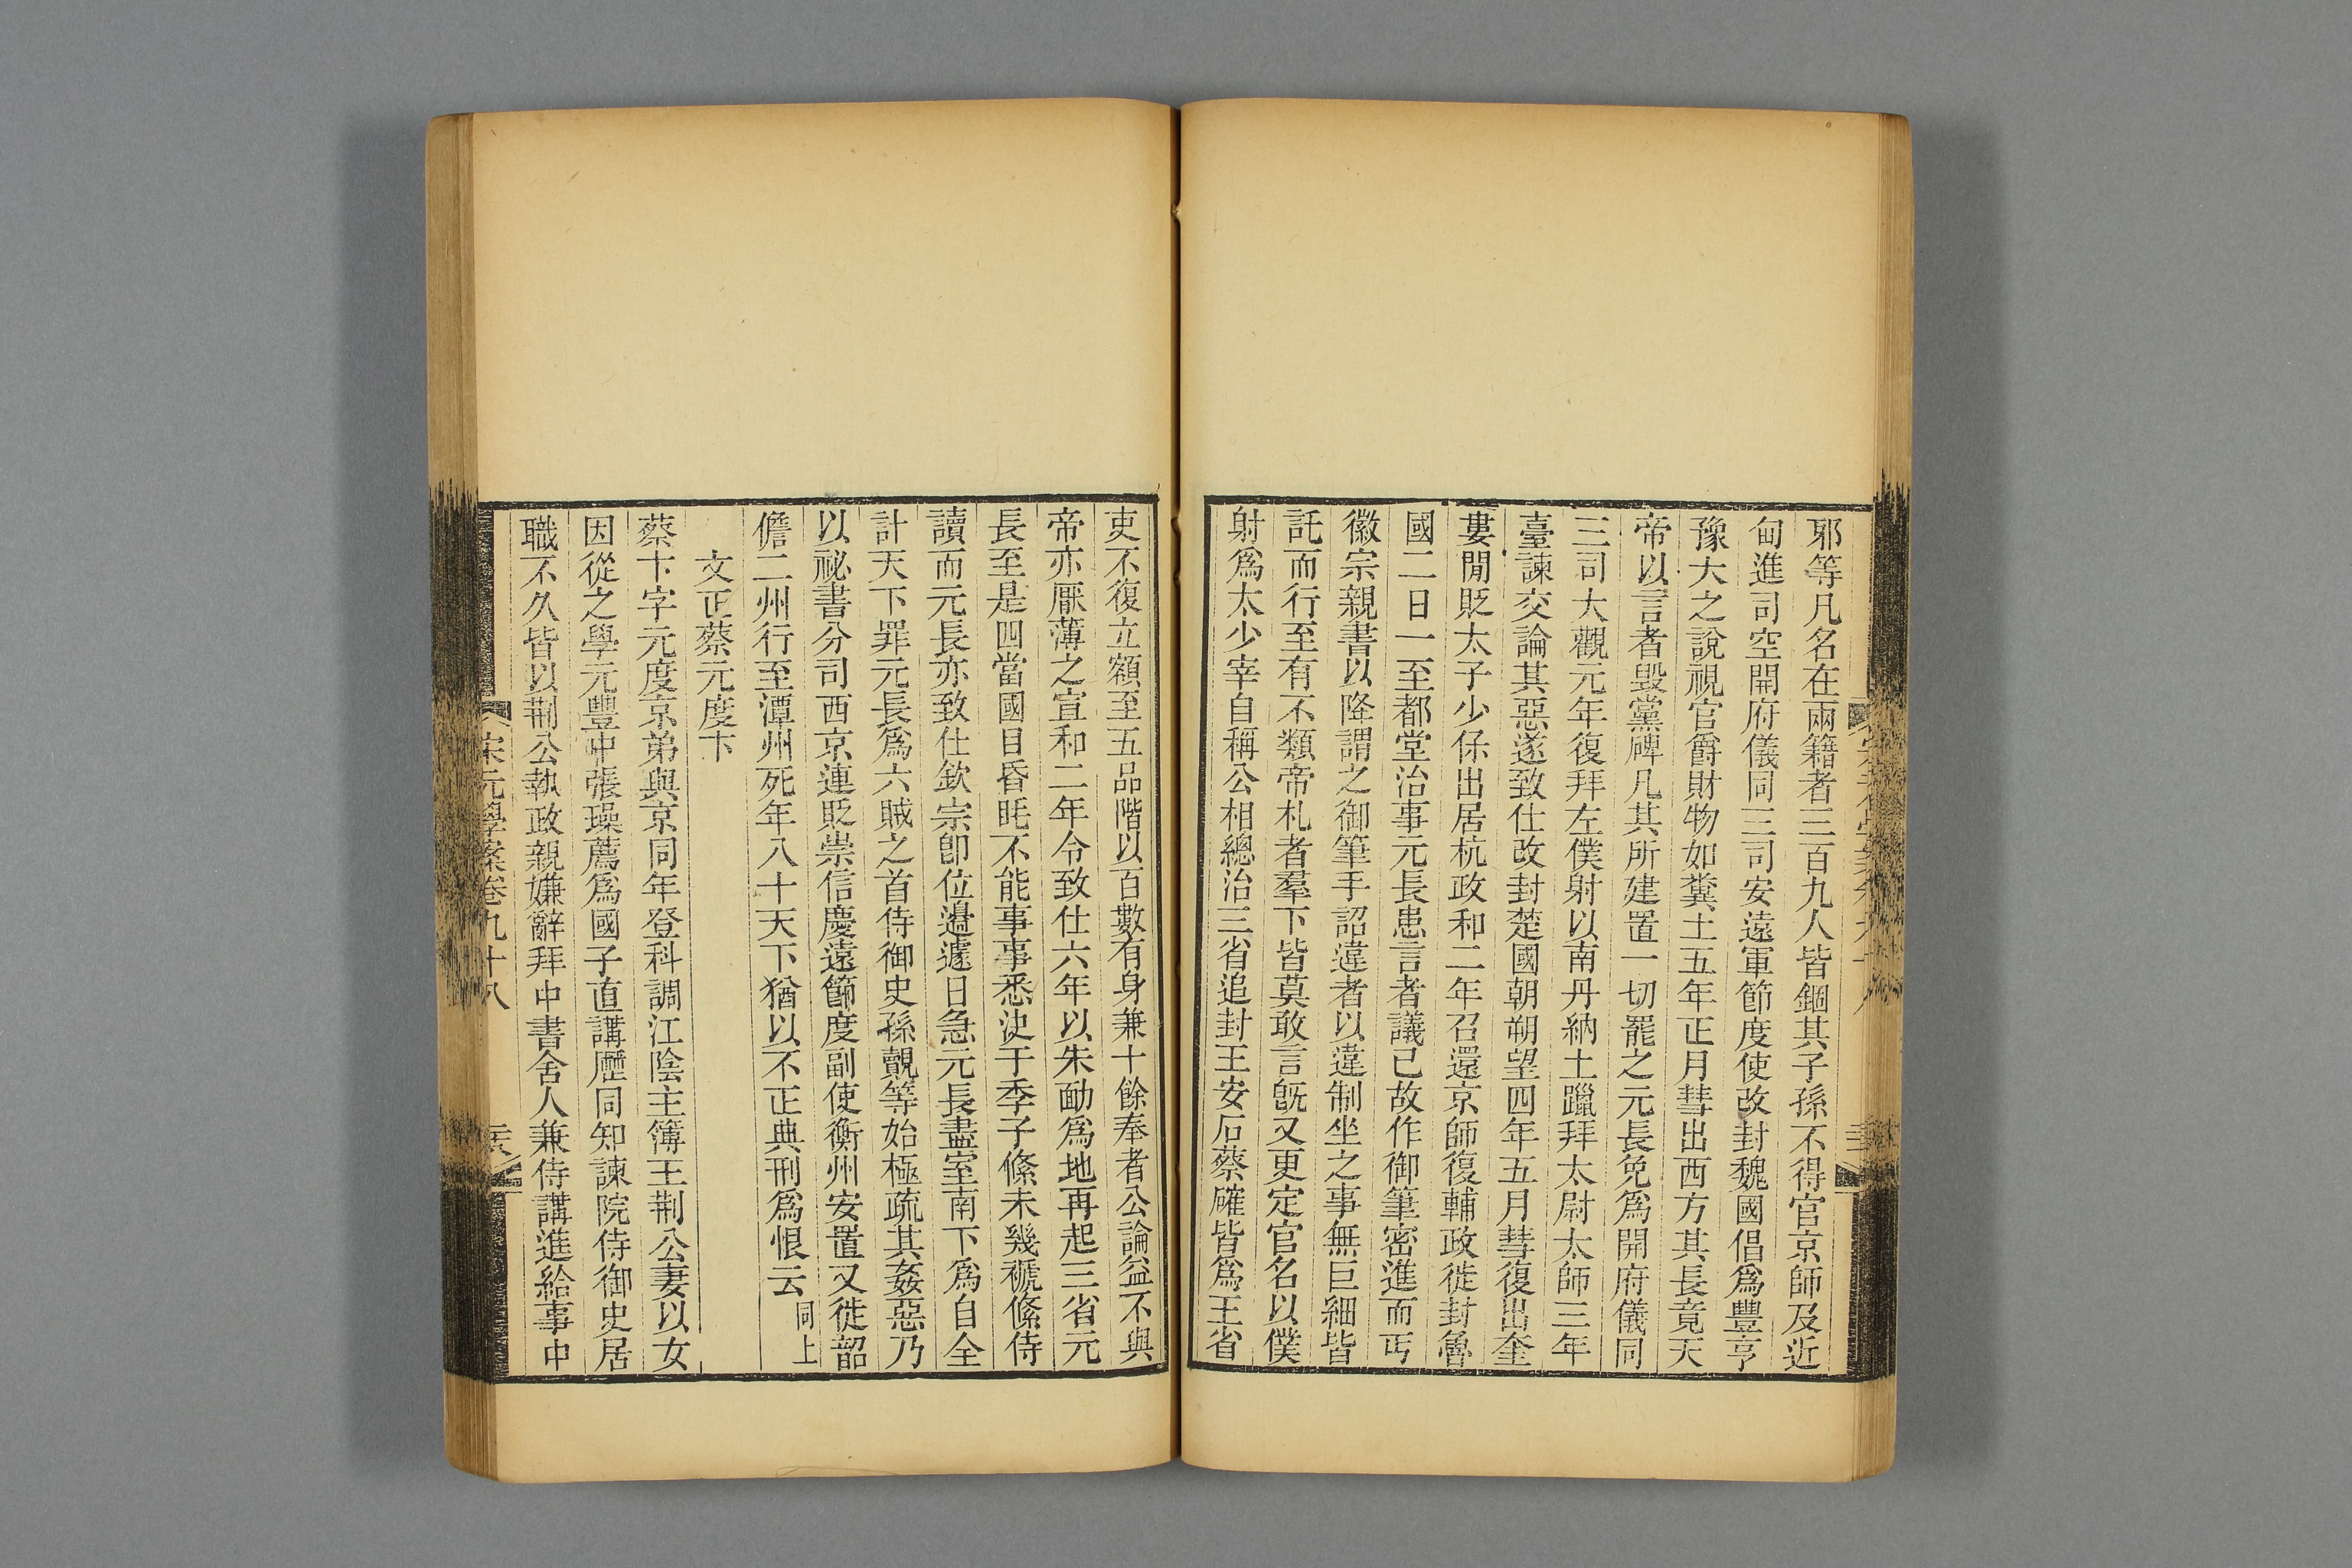 邪等凡名在兩籍者三百九人皆錮其子孫不得官京師及近
甸進司空開府儀同三司安遠軍節度使改封魏國倡爲豐亨
豫大之說視官爵財物如糞土五年正月彗出西方其長竟天
帝以言者毀黨碑凡其所建置一切罷之元長免爲開府儀同
三司大觀元年復拜左僕射以南丹納土躐拜太尉太師三年
臺諫交論其惡遂致仕改封楚國朝朔望四年五月彗復出奎
婁閒貶太子少保出居杭政和二年召還京師復輔政徙封魯
國二日一至都堂治事元長患言者議已故作御筆密進而丐
徽宗親書以降謂之御筆手詔違者以違制坐之事無巨細皆
託而行至有不類帝札者羣下皆莫敢言旣又更定官名以僕
射爲太少宰自稱公相總治三省追封王安石蔡確皆爲王省
吏不復立額至五品階以百數有身兼十餘奉者公論益不與
帝亦厭薄之宣和二年令致仕六年以朱勔爲地再起三省元
長至是四當國目昏眊不能事事悉決于季子絛未幾褫絛侍
讀而元長亦致仕欽宗卽位邊遽日急元長盡室南下爲自全
計天下罪元長爲六賊之首侍御史孫覿等始極疏其姦惡乃
以祕書分司西京連貶崇信慶遠節度副使衡州安置又徙韶
儋二州行至潭州死年八十天下猶以不正典刑爲恨云同上
文正蔡元度卞
蔡卞字元度京弟與京同年登科調江陰主簿王荆公妻以女
因從之學元豐中張璪薦爲國子直講歷同知諫院侍御史居
職不久皆以荆公執政親嫌辭拜中書舍人兼侍講進給事中
宋元學案卷九十八